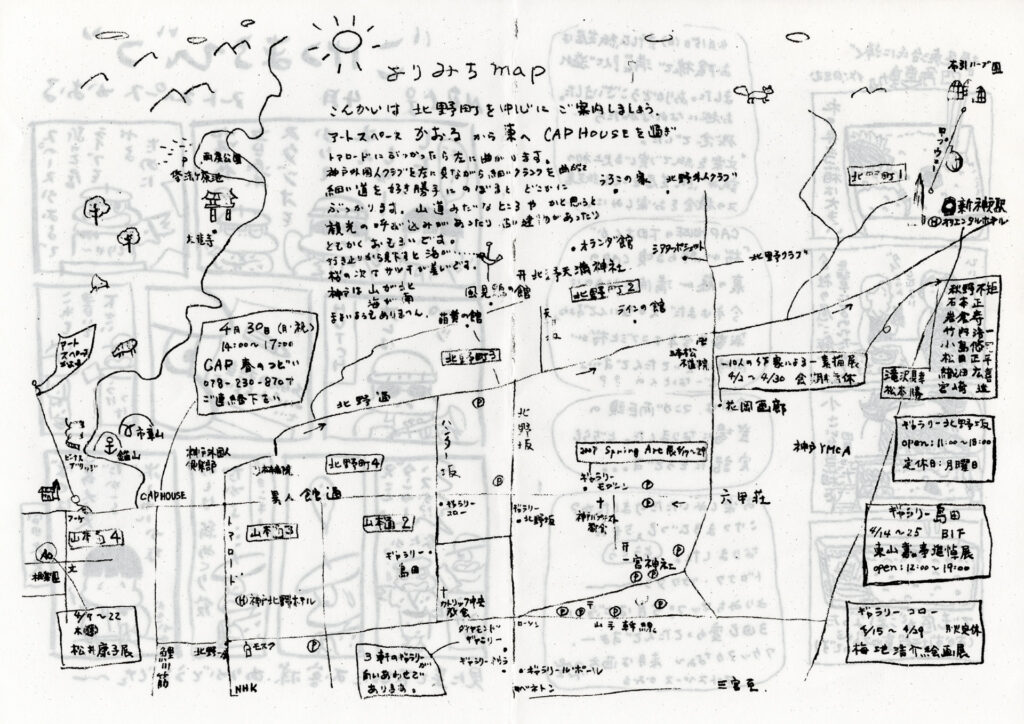 よりみち map
こんかいは 北野町を中心に ご案内しましょう。
アートスペース かおる から 東へ CAP HOUSE を過ぎ
トアロードにぶつかったら左に曲がります。
神戸外国人クラブを左に見ながら細いクランクを曲がって
細い道を好き勝手にのぼると どこかに
ぶつかります。山道みたいなところや かと思うと
観光の呼び込みがあったり 古い建物があったり
ともかく おもろいです。
神戸は 山が北
海が南
まよいようもありません。
布引ハーブ園
ロープウェー
新神戸駅
Ⓗオリエンタルホテル
北野町1
うろこの家
北野外人クラブ
オランダ館
北野クラブ
北野天満神社
北野町2
風見鶏の館
ラインの館
萌黄の館
天神坂
北野町3
北野通
ハンター坂
北野坂
P
再度公園
修法ヶ原池
大龍寺
アートスペースかおる
市章山
錨山
ビーナスブリッジ
4月30日(月・祝)
14:00〜17:00
CAP 春のつどい
078-230-8707
ご連絡下さい
10人の作家による一素描展
4/2〜4/30 会期無休
花岡画廊
秋野不矩
石本正
岩倉寿
竹内浩一
小島悠二
松田正平
織田広喜
宮崎進
滝沢具幸
松本勝
神戸YMCA
ギャラリー北野坂
open:11:00〜18:00
定休日:月曜日
2007 Spring Art展
ギャラリー
六甲荘
一宮神社
神戸外国人倶楽部
北野町4
異人館通
CAPHOUSE
山本通4
山本通3
山本通2
トアロード
ギャラリーコロー
ギャラリー北野坂
ギャラリー島田
Ⓗ神戸北野ホテル
カトリック中央教会
ダイヤモンドギャラリー
ローソン
山手幹線
モスク
NHK
鯉川筋
ギャラリールポール
ベネトン
三宮至
3軒のギャラリーが
向いあわせで
あります。
4/9〜22
松井康子展
ギャラリー 島田
4/14〜25 B1F
東山嘉事追悼展
open:12:00〜19:00
ギャラリー コロー
4/15〜4/29 月火定休
梅地浩介絵画展